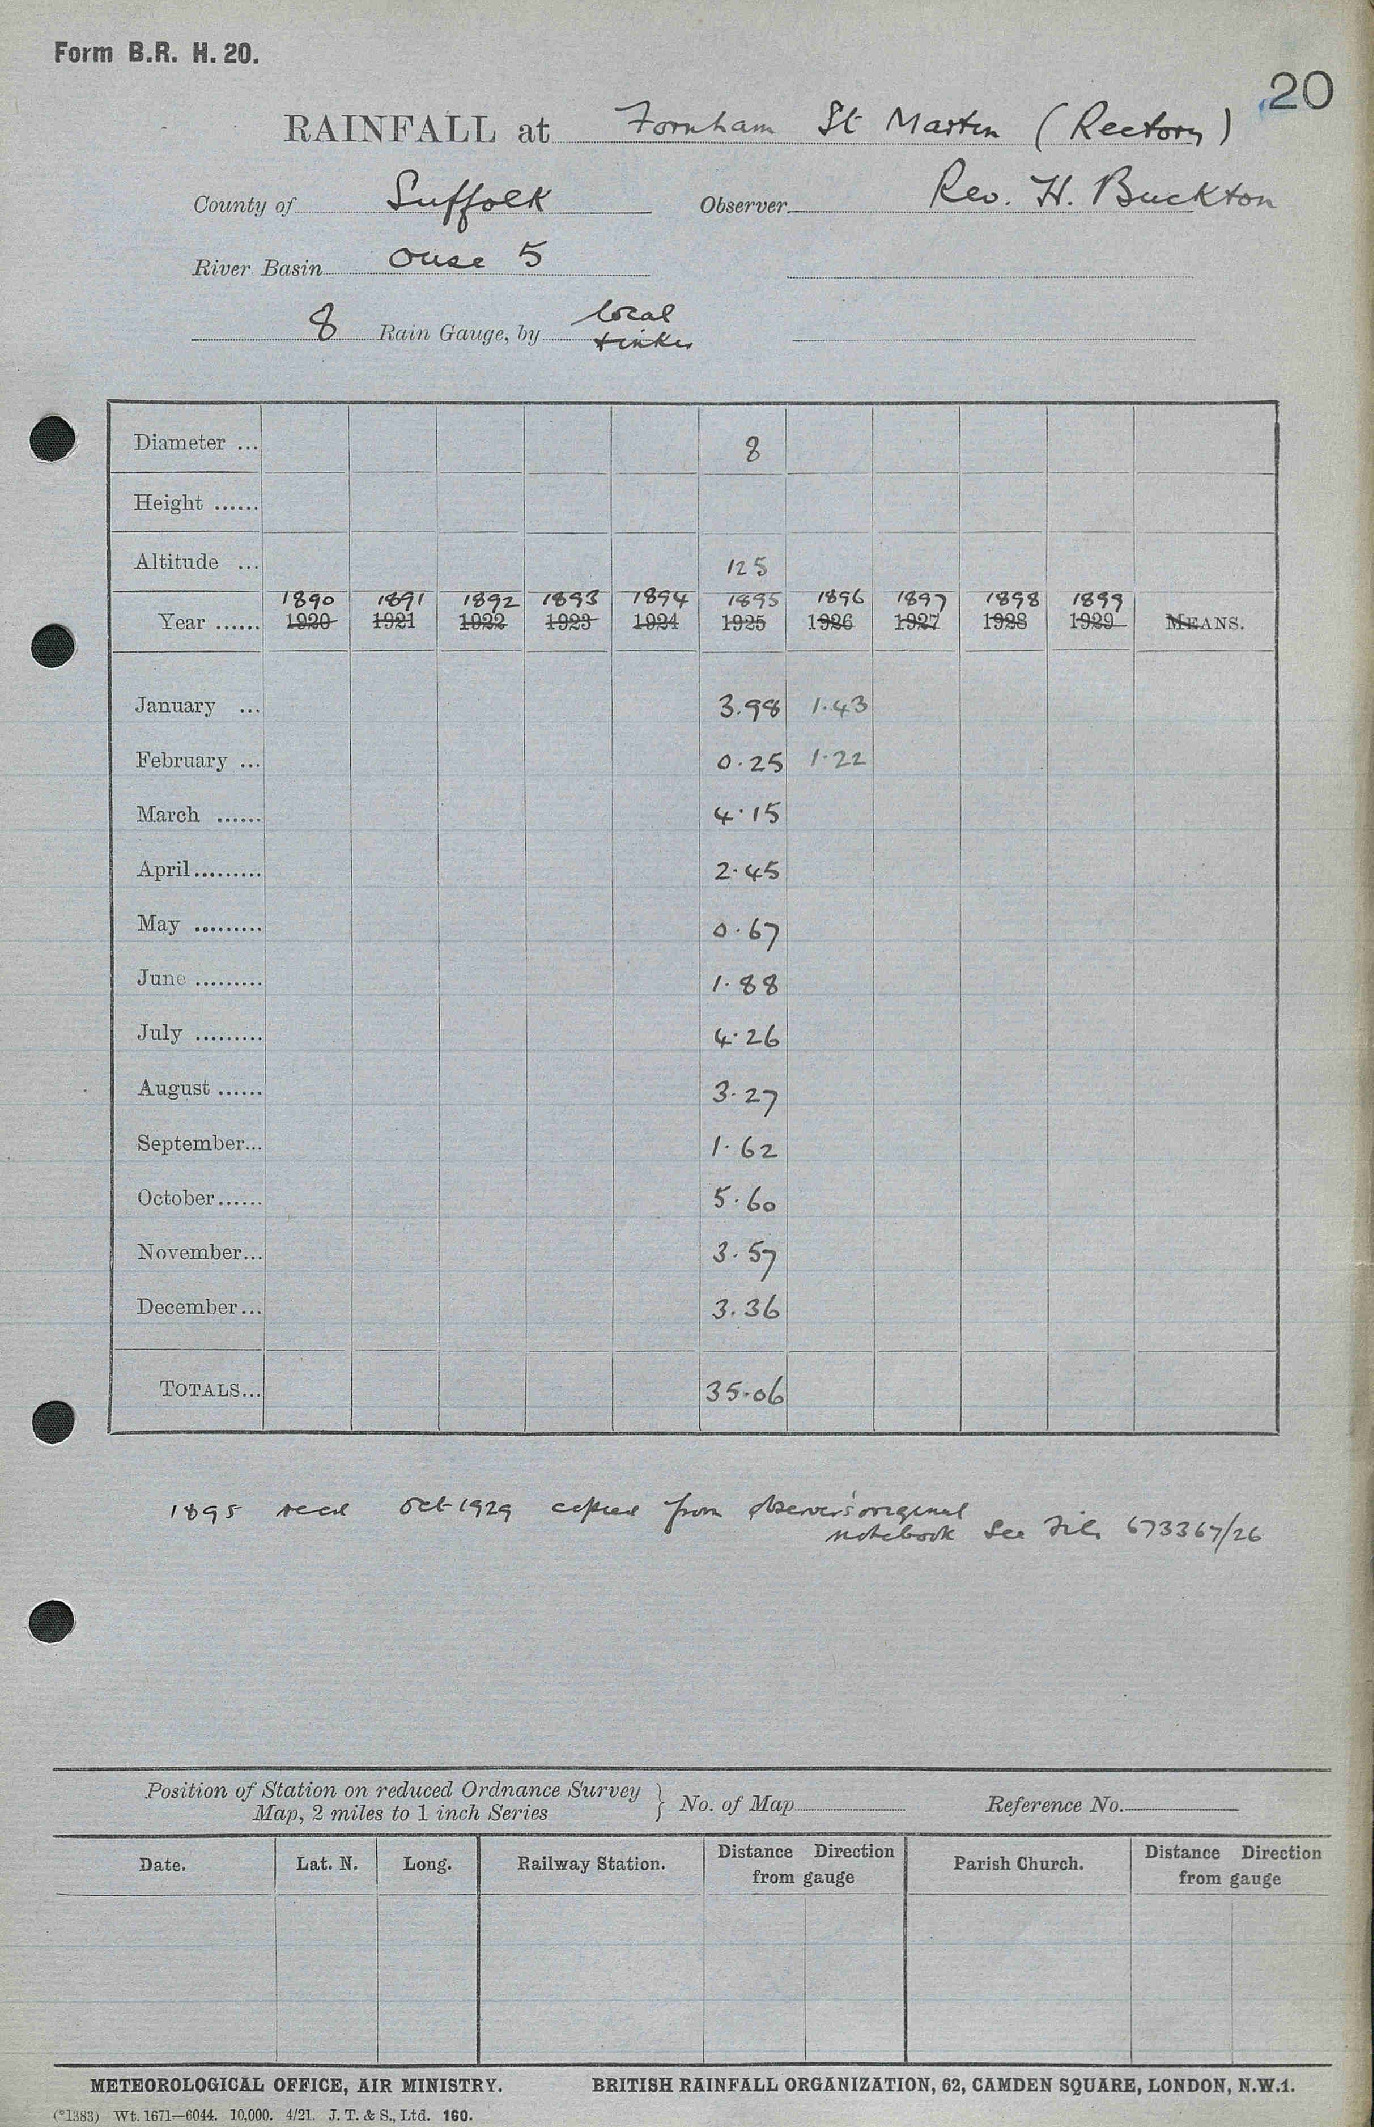 Form B.R. H. 20.
20
RAINFALL at Fornham St Martin (Rectory)
County of Suffolk Observer Rev. H. Buckton
River Basin Ouse 5
8 Rain Gauge, by local
tinker
Diameter ... 8
Height ......
Altitude ... 125
1890 1891 1892 1893 1894 1895 1896 1897 1898 1899
Year ...... 1920 1921 1922 1923 1924 1925 1926 1927 1928 1929 MEANS.
January ... 3.98 1.43
February ... 0.25 1.22
March ...... 4.15
April......... 2.45
May ......... 0.67
June ......... 1.88
July ......... 4.26
August ...... 3.27
September... 1.62
October...... 5.60
November... 3.57
December... 3.36
TOTALS... 35.06
1895 recd Oct 1929 copied from observer's original
notebook See File 673367/26
Position of Station on reduced Ordnance Survey
Map, 2 miles to 1 inch Series } No. of Map Reference No.
Date. Lat. N. Long. Railway Station. Distance Direction from gauge Parish Church. Distance Direction from gauge
METEOROLOGICAL OFFICE, AIR MINISTRY. BRITISH RAINFALL ORGANIZATION, 62, CAMDEN SQUARE, LONDON, N.W.1.
(*1383) Wt. 1671—6044. 10,000. 4/21. J. T. & S., Ltd. 160.